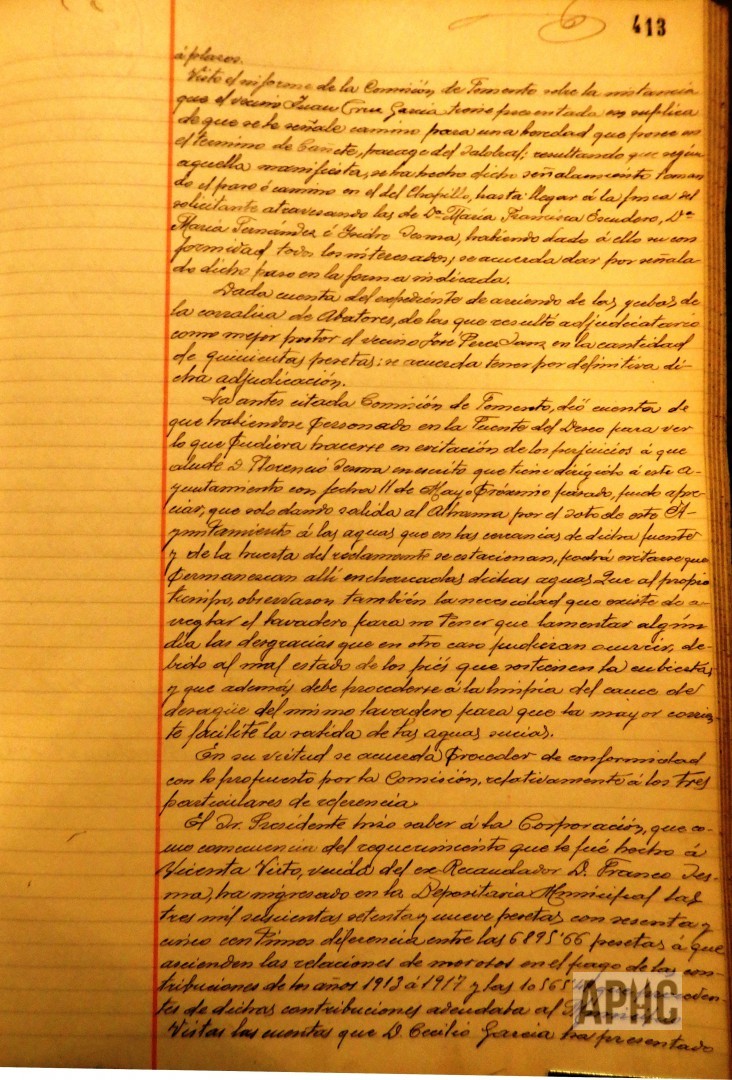 413
á plazos.
Visto el informe de la Comisión de Fomento sobre la instancia
que el vecino Juan Cruz García tiene presentada en suplica
de que se le señale camino para una heredad que posee en
el termino de Cañete, parage del Salobral; resultando que según
aquella manifiesta, se ha hecho dicho señalamiento toman
do el paso ó camino en el del Chopillo, hasta llegar á la finca del
solicitante atravesando las de Dª María Francisca Escudero, Dª
María Fernández é Isidro Lesma, habiendo dado á ello su con
formidad todos los interesados; se acuerda dar por señala-
do dicho paso en la forma indicada.
Dada cuenta del expediente de arriendo de las yerbas de
la corraliza de Abatores, de las que resultó adjudicatario
como mejor postor el vecino José Perez Sanz en la cantidad
de quinientas pesetas; se acuerda tener por definitiva di-
cha adjudicación.
La antes citada Comisión de Fomento, dió cuenta de
que habiendose personado en la Fuente del Deseo para ver
lo que pudiera hacerse en evitación de los perjuicios á que
alude D. Florencio Lesma en escrito que tiene dirigido á este A-
yuntamiento con fecha 11 de Mayo próximo pasado, pudo apre-
ciar, que solo dando salida al Alhama por el soto de este A-
yuntamiento á las aguas que en las cercanías de dicha fuente
y de la huerta del reclamante se estacionan, podrá evitarse que
permanezcan allí encharcadas dichas aguas. Que al propio
tiempo, observaron también la necesidad que existe de a-
rreglar el lavadero para no tener que lamentar algún
dia las desgracias que en otro caso pudieran ocurrir, de-
bido al mal estado de los piés que sostienen la cubierta,
y que además, debe procederse á la limpia del cauce de
desagüe del mismo lavadero para que la mayor corrien-
te facilite la salida de las aguas sucias.
En su virtud se acuerda proceder de conformidad
con lo propuesto por la Comisión, relativamente á los tres
particulares de referencia.
El Sr. Presidente hizo saber á la Corporación, que co-
mo consecuencia del requerimiento que le fué hecho á
Vicenta Visto, viuda del ex-Recaudador D. Franco Les-
ma, ha ingresado en la Depositaria Municipal las
tres mil seiscientas setenta y nueve pesetas con sesenta y
cinco céntimos diferencia entre las 6895'66 pesetas á que
ascienden las relaciones de morosos en el pago de las con-
tribuciones de los años 1913 á 1917 y las 10565
tes de dichas contribuciones adeudaba al
Vistas las cuentas que D. Cecilio García ha presentado
APHC